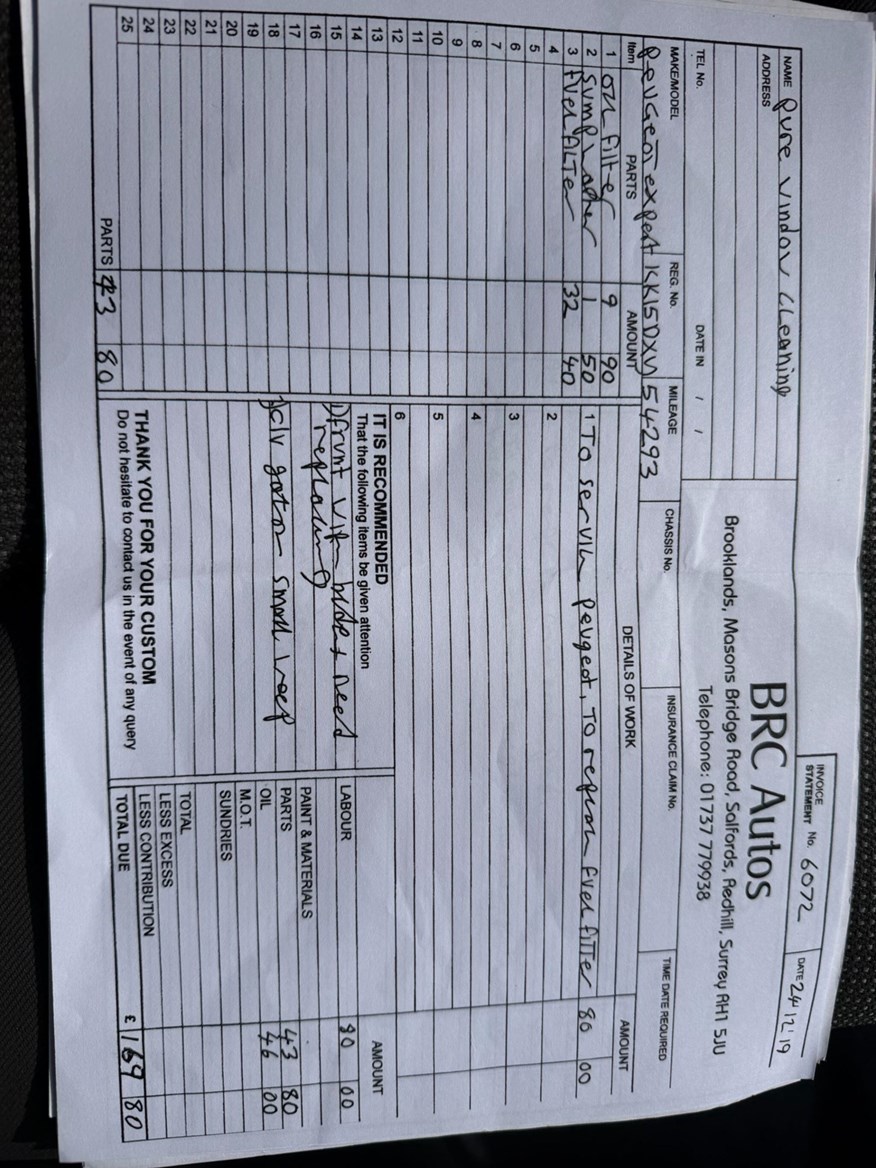 INVOICE
STATEMENT No. 6072 DATE 24/12/19
BRC Autos
Brooklands, Masons Bridge Road, Salfords, Redhill, Surrey RH1 5JU
Telephone: 01737 779938
NAME Pure Window Cleaning
ADDRESS
TEL No. DATE IN / /
MAKE/MODEL REG. No. MILEAGE CHASSIS No. INSURANCE CLAIM No. TIME DATE REQUIRED
Peugeot expert KK15DXV 54293
Item PARTS AMOUNT DETAILS OF WORK AMOUNT
1 oil filter 9 90
2 sump washer 1 50 1 To service peugeot, To replace fuel filter 80 00
3 fuel filter 32 40
4 2
5
6 3
7
8 4
9
10 5
11
12 6
13 IT IS RECOMMENDED AMOUNT
14 That the following items be given attention
15 front blades need LABOUR 80 00
16 replacing
17 PAINT & MATERIALS
PARTS 43 80
18 gator small OIL 46 00
19 M.O.T.
20 SUNDRIES
21
22 TOTAL
23 LESS EXCESS
24 THANK YOU FOR YOUR CUSTOM LESS CONTRIBUTION
25 PARTS 43 80 Do not hesitate to contact us in the event of any query TOTAL DUE £ 169 80